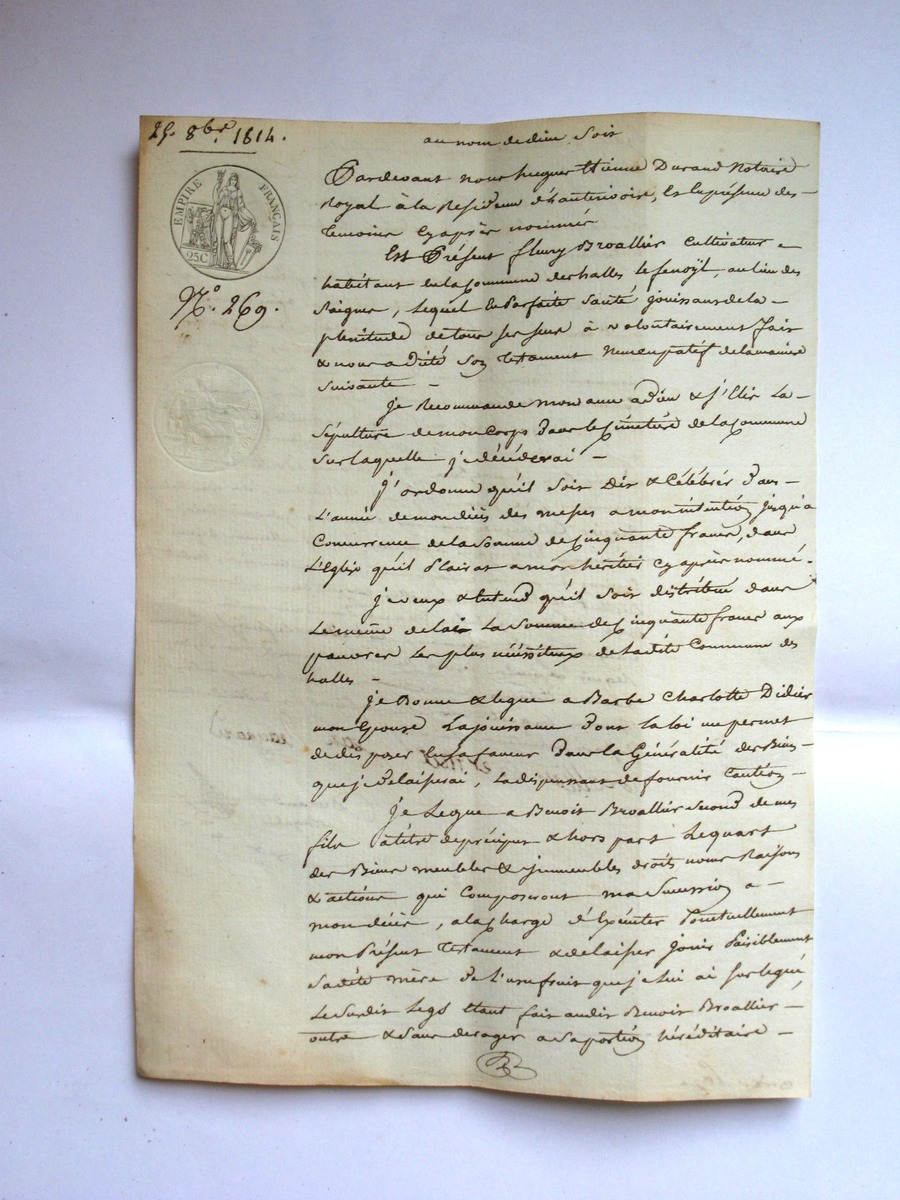 25. 8bre. 1814.
au nom de dieu soit
EMPIRE FRANÇAIS
25C
No. 269.
Pardevant nous Etienne Durand Notaire
Royal à la Residence d'hauterivoire, En la présence des
temoins Cyaprès nommés
Est Présent fleury Broallier Cultivateur
habitant en la Commune des halles le fenoÿl, au lieu des
Saignes, lequel En Parfaite Santé jouissant de la
plenitude de tous ses sens à volontairement fait
& nous a dicté Son testament Nuncupatif de la maniere
suivante
Je Recommande mon ame a Dieu & j'Elis La
Sépulture de mon Corps Dans le Cimetière de la Commune
sur laquelle je décéderai
J'ordonne qu'il soit Dit & Célébrér Dans
L'année de mon décès des messes a mon intention jusqu'a
Concurrence de la Somme de Cinquante francs, dans
L'Eglise qu'il Plairat a mon héritier Cyaprès nommé
Je veux & Entend qu'il soit distribué dans
Le même delais La Somme de Cinquante francs aux
pauvres Les plus nécessiteux de Ladite Commune des
halles
je Donne & legue a Barbe Charlotte Didier
mon Epouse La jouissance Dont la loi me permet
de disposer En sa faveur Dans la Généralité des Biens
que je Delaisserai, La dispensant de fournir Caution
Je Legue a Benoit Broallier second de mes
fils a titre de préciput & hors part Le quart
des Biens meubles & jmmeubles droits noms Raisons
& actions qui Composeront ma Succession a
mon décès, a la charge d'Exécuter Ponctuellement
mon Présent Testament & de laisser jouir Paisiblement
sadite mère De L'usufruit que je lui ai sus legué,
Le susdit Legs Etant fait audit Benoit Broallier
outre & sans deroger a sa portion héréditaire